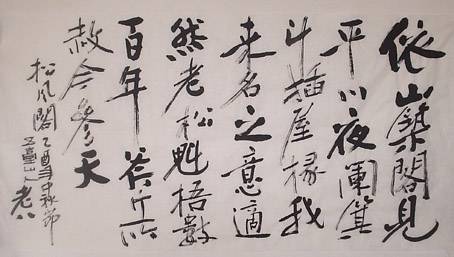 依山築閣見
平川夜闌箕
斗插屋椽我
来名之意適
然老松魁梧數
百年斧斤所
赦今參天
松风閣 乙酉年中秋節
五臺山人老八